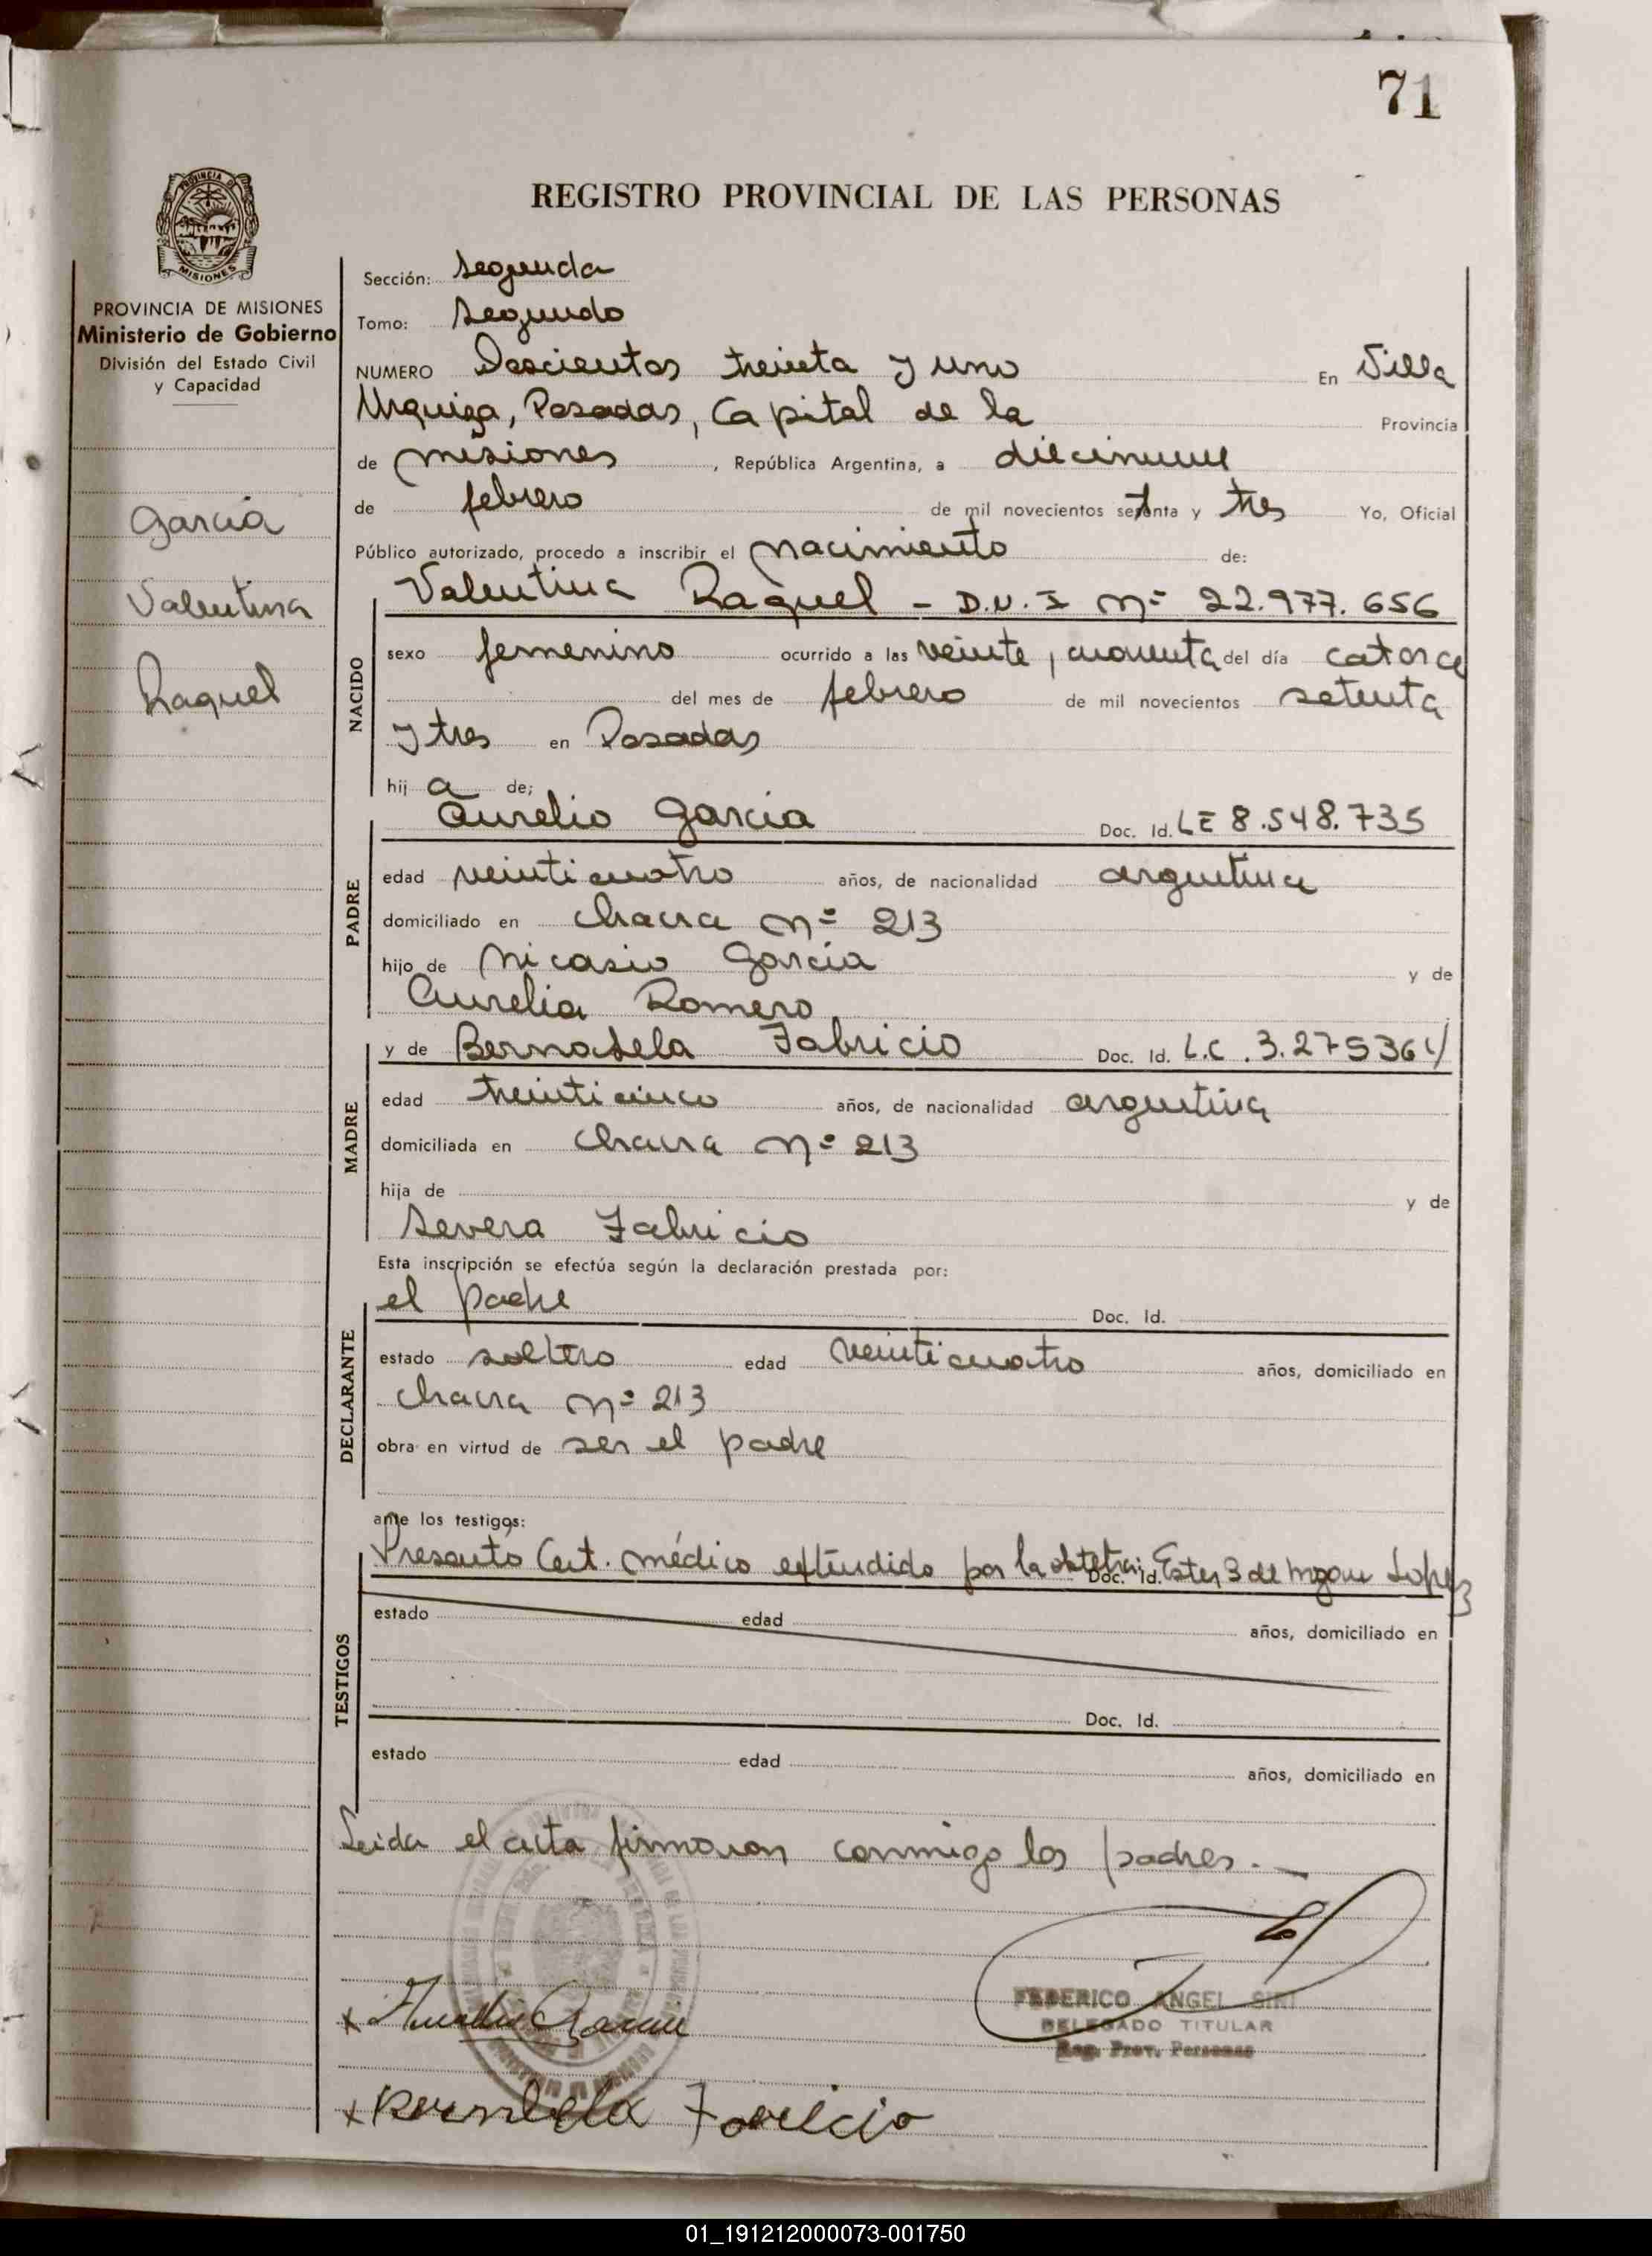 71
REGISTRO PROVINCIAL DE LAS PERSONAS
PROVINCIA DE
MISIONES
PROVINCIA DE MISIONES
Ministerio de Gobierno
División del Estado Civil
y Capacidad
Garcia
Valentina
Raquel
Sección: Segunda
Tomo: Segundo
NUMERO Doscientos treinta y uno En Villa
Urquiza, Posadas, Capital de la Provincia
de misiones, República Argentina, a diecinueve
de febrero de mil novecientos setenta y tres Yo, Oficial
Público autorizado, procedo a inscribir el nacimiento de:
NACIDO
Valentina Raquel - D.N.I nº 22.977.656
sexo femenino ocurrido a las veinte, cuarenta del día catorce
del mes de febrero de mil novecientos setenta
y tres en Posadas
hij a de;
PADRE
Aurelio Garcia Doc. Id. LE 8.548.735
edad veinticuatro años, de nacionalidad argentina
domiciliado en chacra nº 213
hijo de Nicasio Garcia y de
Aurelia Romero
MADRE
y de Bernabela Fabricio Doc. Id. L.C. 3.275364
edad treinticinco años, de nacionalidad argentina
domiciliada en chacra nº 213
hija de y de
Severa Fabricio
Esta inscripción se efectúa según la declaración prestada por:
DECLARANTE
el padre Doc. Id.
estado soltero edad veinticuatro años, domiciliado en
chacra nº 213
obra en virtud de ser el padre
ante los testigos:
TESTIGOS
Presentó Cert. médico extendido por la obstetra: Ester B de Lopez Doc. Id.
estado edad años, domiciliado en
Doc. Id.
estado edad años, domiciliado en
Leida el acta firmaron conmigo los padres.
x Aurelio Garcia
FEDERICO ANGEL SIRI
DELEGADO TITULAR
Reg. Prov. Personas
x Bernabela Fabricio
01_191212000073-001750